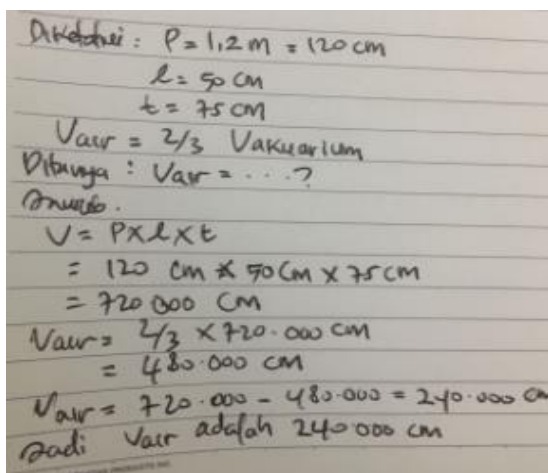 Diketahui : P = 1,2 m = 120 cm
l = 50 cm
t = 75 cm
Vair = 2/3 Vakuarium
Ditanya : Vair = . . . ?
Jawab.
V = P x l x t
= 120 cm x 50 cm x 75 cm
= 720 000 cm
Vair = 2/3 x 720.000 cm
= 480.000 cm
Vair = 720.000 - 480.000 = 240.000 cm
Jadi Vair adalah 240 000 cm